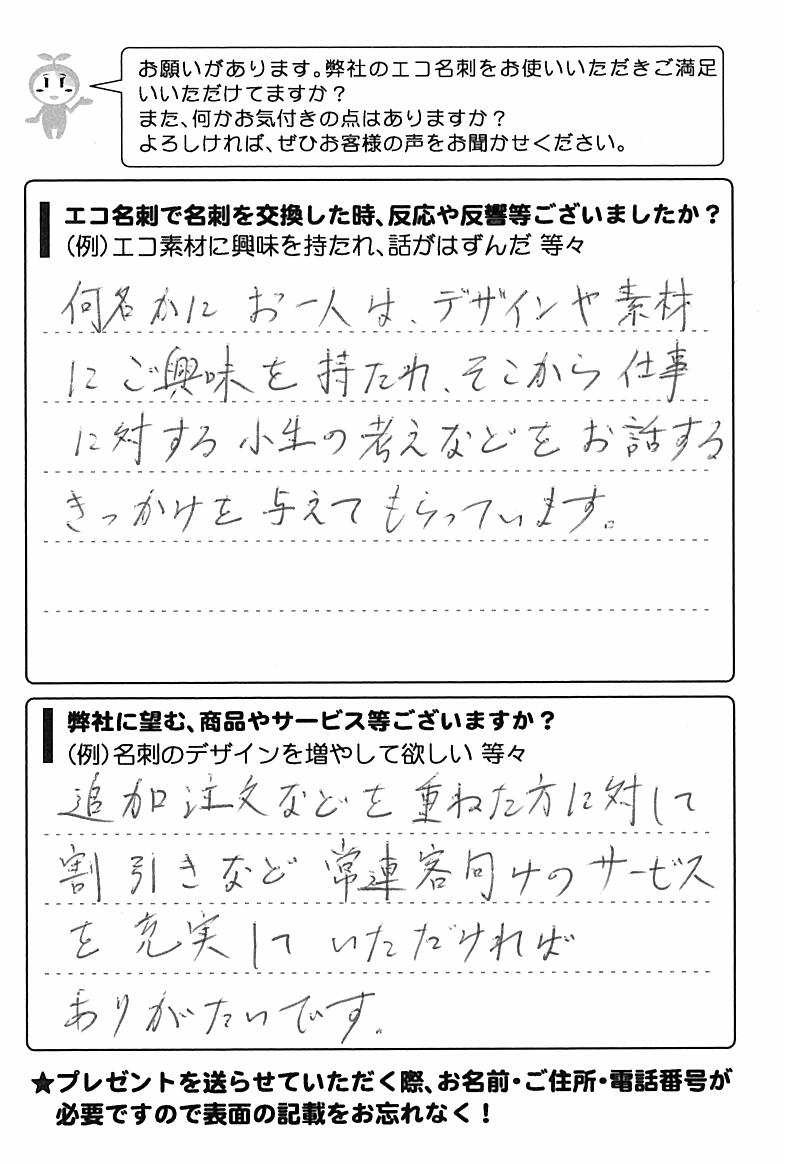 お願いがあります。弊社のエコ名刺をお使いいただきご満足
いいただけてますか？
また、何かお気付きの点はありますか？
よろしければ、ぜひお客様の声をお聞かせください。
エコ名刺で名刺を交換した時、反応や反響等ございましたか？
（例）エコ素材に興味を持たれ、話がはずんだ 等々
何名かにお一人は、デザインや素材
にご興味を持たれ、そこから仕事
に対する小生の考えなどをお話する
きっかけを与えてもらっています。
弊社に望む、商品やサービス等ございますか？
（例）名刺のデザインを増やして欲しい 等々
追加注文などを重ねた方に対して
割引きなど常連客向けのサービス
を充実していただければ
ありがたいです。
★プレゼントを送らせていただく際、お名前・ご住所・電話番号が
必要ですので表面の記載をお忘れなく！